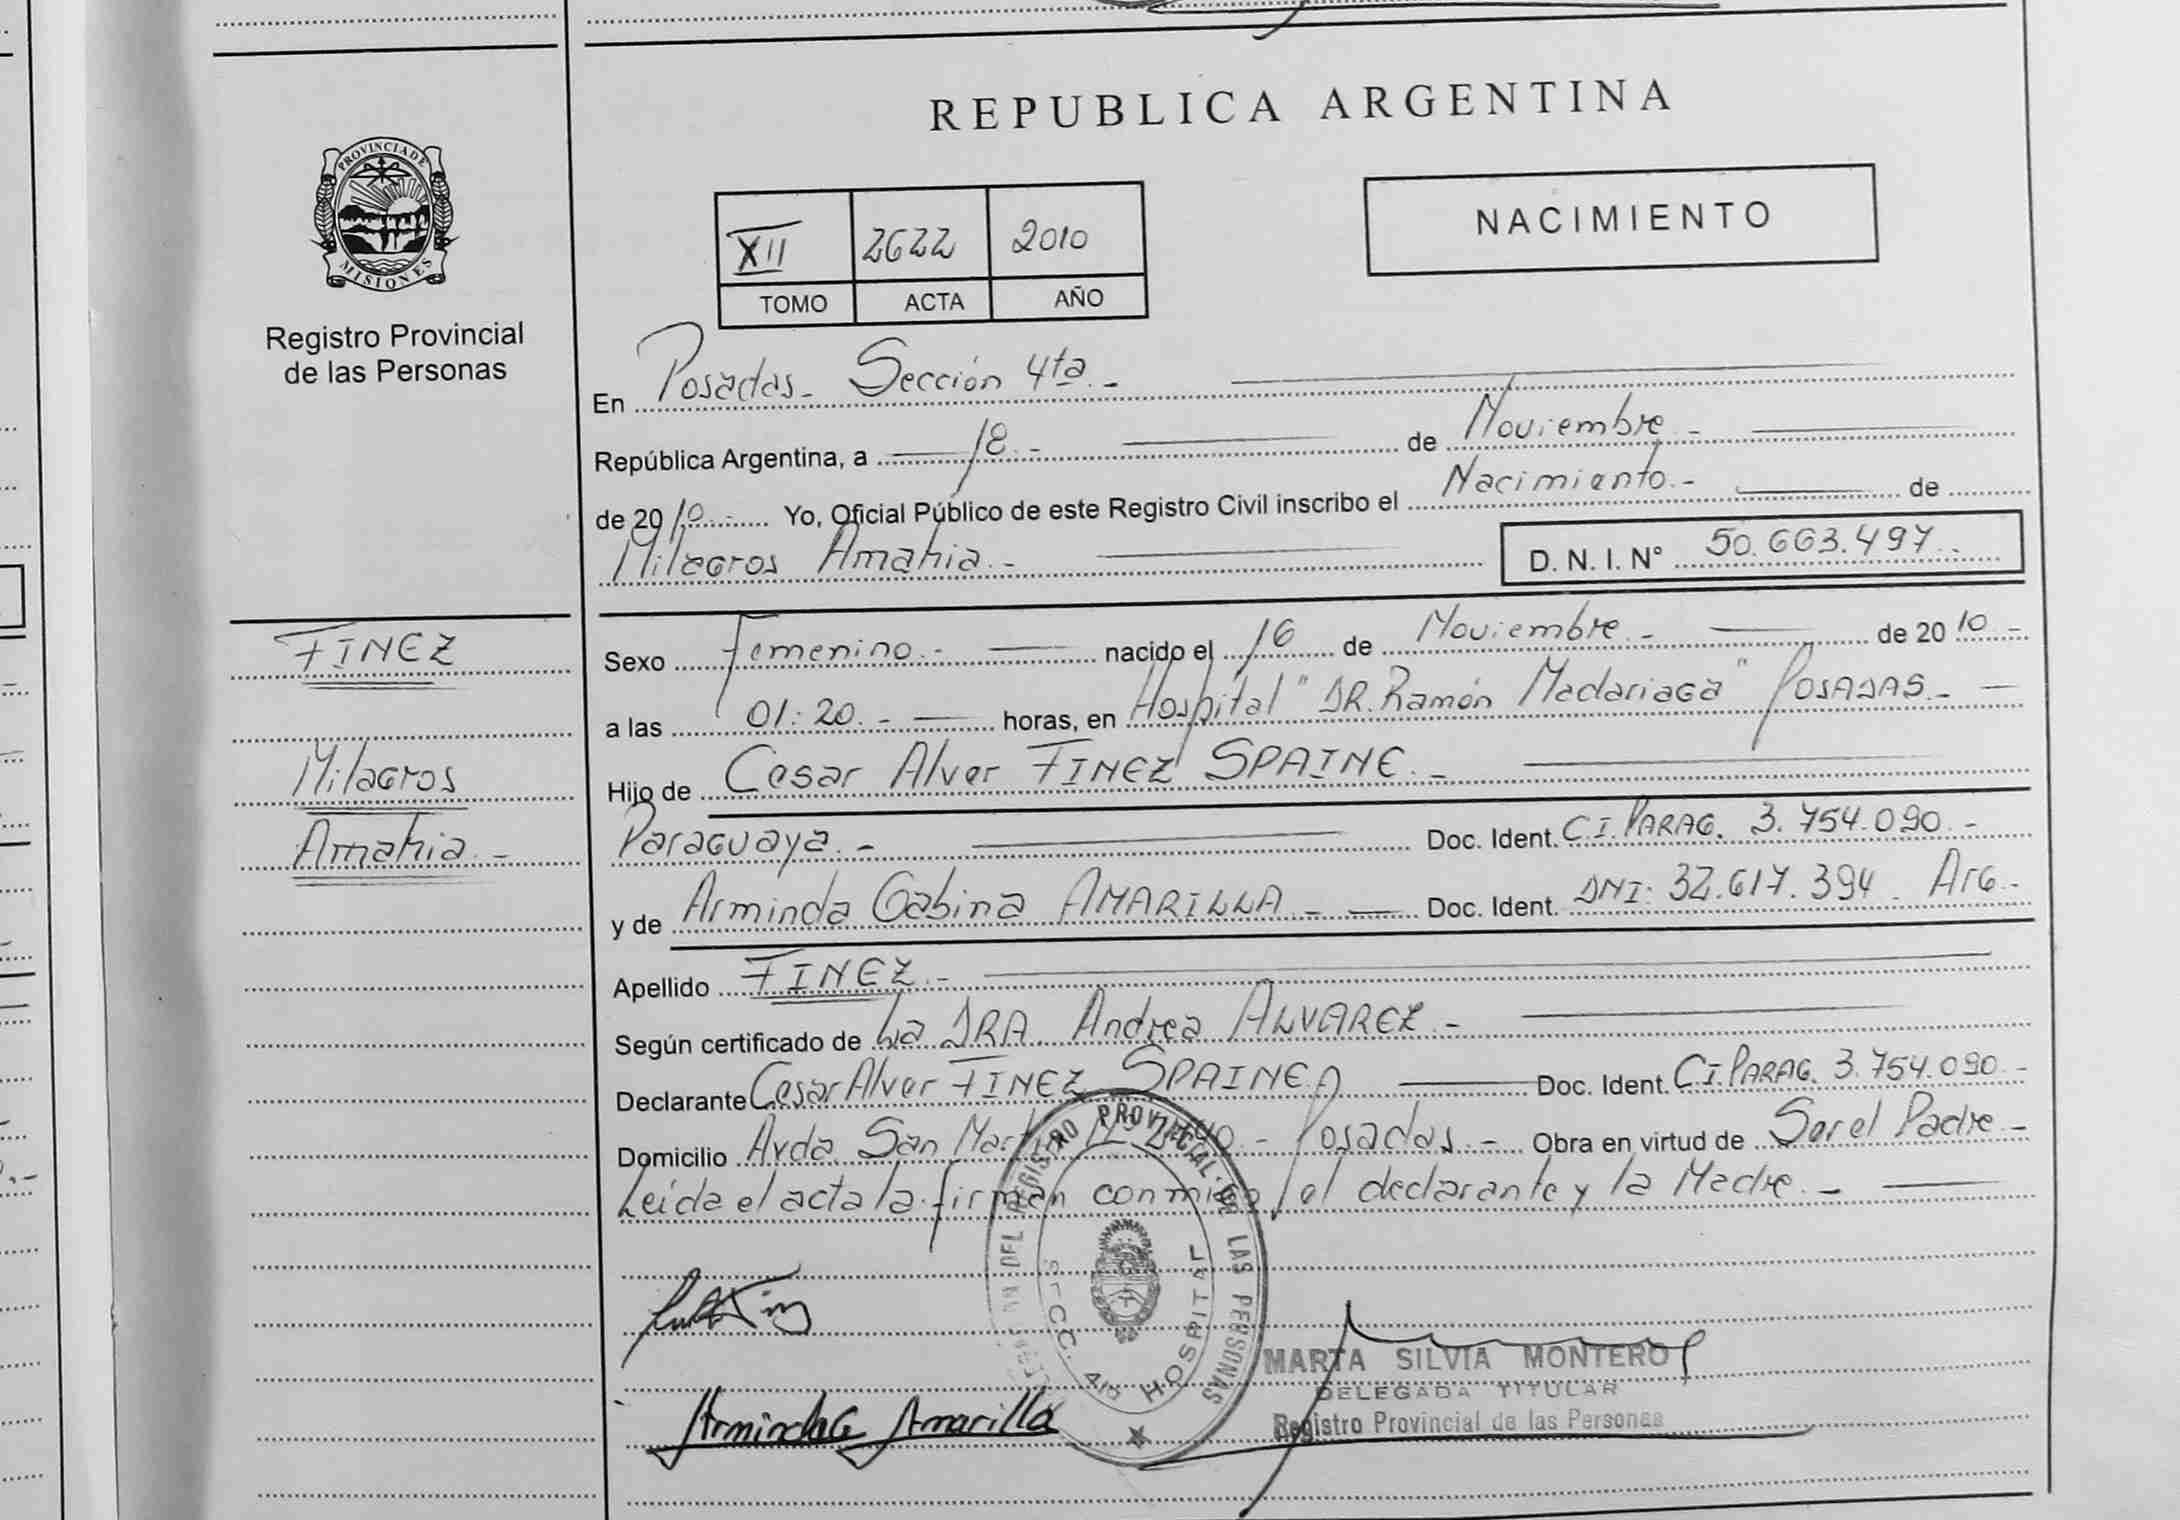 REPUBLICA ARGENTINA
PROVINCIA DE MISIONES
Registro Provincial
de las Personas
NACIMIENTO
XII 2622 2010
TOMO ACTA AÑO
En Posadas - Sección 4ta. -
República Argentina, a 18. - de Noviembre -
de 2010. - Yo, Oficial Público de este Registro Civil inscribo el Nacimiento. - de
Milagros Amahia. - D. N. I. N° 50.663.497. -
FINEZ
Milagros
Amahia. -
Sexo Femenino. - nacido el 16 de Noviembre. - de 2010 -
a las 01:20. - horas, en Hospital "DR. Ramón Madariaga" POSADAS. -
Hijo de Cesar Alver FINEZ SPAINE. -
Paraguaya. - Doc. Ident. C.I. PARAG. 3.754.090. -
y de Arminda Gabina AMARILLA. - Doc. Ident. DNI: 32.617.394. Arg. -
Apellido FINEZ. -
Según certificado de La DRA. Andrea ALVAREZ. -
Declarante Cesar Alver FINEZ SPAINE Doc. Ident. C.I. PARAG. 3.754.090. -
Domicilio Avda. San Martín - Posadas. - Obra en virtud de Ser el Padre -
Leída el acta la firman conmigo el declarante y la Madre. -
REGISTRO PROVINCIAL DE LAS PERSONAS
SECC. 4ta HOSPITAL
MARTA SILVIA MONTERO
DELEGADA TITULAR
Registro Provincial de las Personas
Arminda G Amarilla